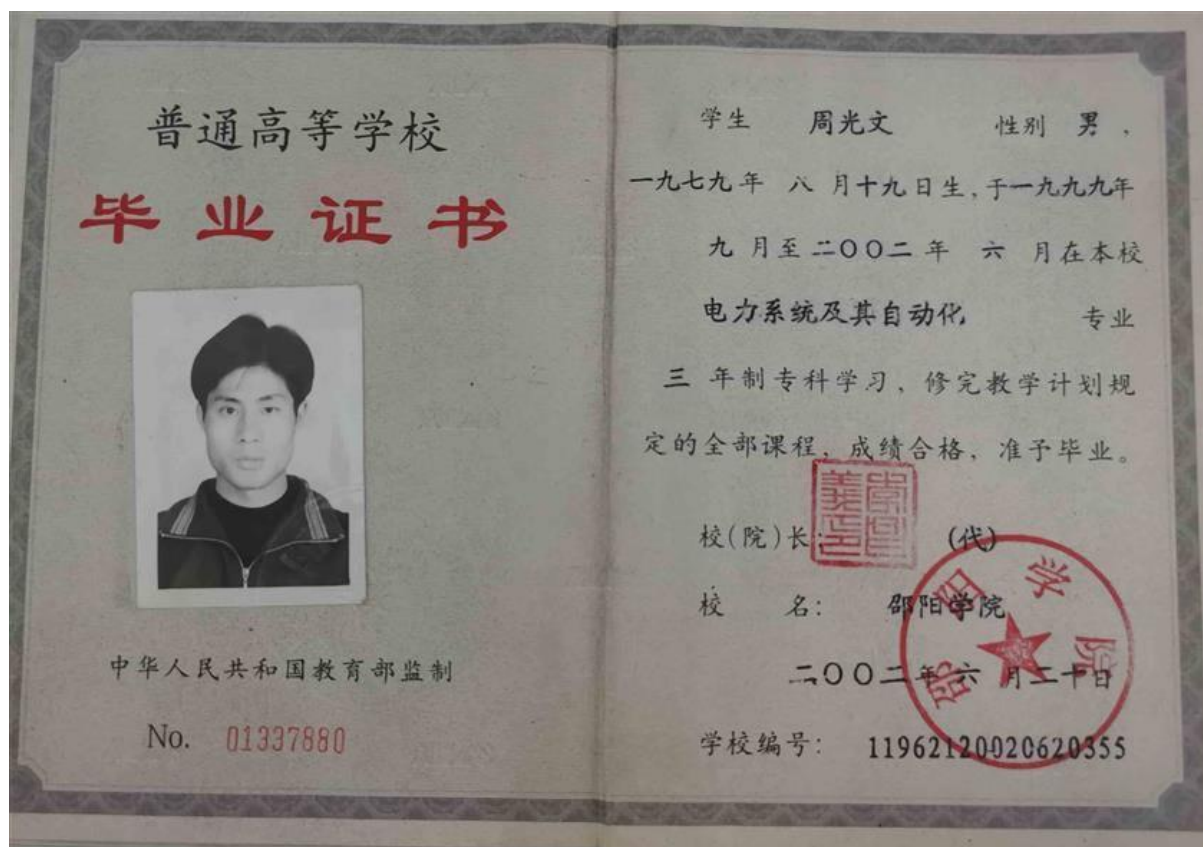 普通高等学校
毕业证书
中华人民共和国教育部监制
No. 01337880
学生 周光文 性别 男，
一九七九年 八 月十九日生，于一九九九年
九 月至 二〇〇二 年 六 月在本校
电力系统及其自动化 专业
三 年制专科学习，修完教学计划规
定的全部课程，成绩合格，准予毕业。
校(院)长： (代)
校 名： 邵阳学院
二〇〇二年 六 月二十日
学校编号： 119621200206203​55
邵阳学院